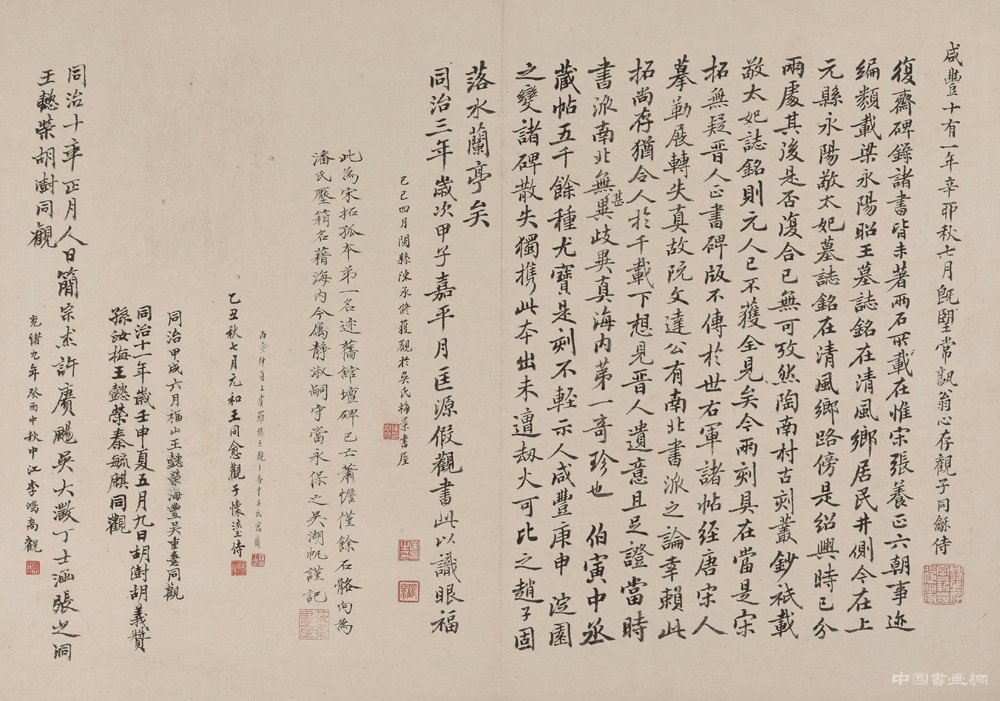 咸豐十有一年辛酉秋七月旣望常翁心存觀子同龢侍
復齋碑錄諸書皆未著兩石所載在惟宋張養正六朝事迹
編類載梁永陽昭王墓誌銘在清風鄉居民井側今在上
元縣永陽敬太妃墓誌銘在清風鄉路傍是紹興時已分
兩處其後是否復合已無可攷然陶南村古刻叢鈔祇載
敬太妃誌銘則元人已不獲全見矣今兩刻具在當是宋
拓無疑晉人正書碑版不傳於世右軍諸帖經唐宋人
摹勒展轉失真故阮文達公有南北書派之論幸賴此
拓尚存猶令人於千載下想見晉人遺意且足證當時
書派南北無甚異歧異真海內第一奇珍也 伯寅中丞
藏帖五千餘種尤寶是刻不輕示人咸豐庚申 淀園
之變諸碑散失獨攜此本出未遭劫火可比之趙子固
落水蘭亭矣
同治三年歲次甲子嘉平月匡源假觀書此以識眼福
己巳四月閩縣陳承修獲觀於吳氏梅景書屋
此為宋拓孤本第一名迹舊館壇碑已亡蕭憺僅餘石骼向為
潘氏壓箱名籍海內今屬靜淑嗣守當永保之吳湖帆謹記
乙丑秋七月元和王同愈觀子懷鎏侍
同治甲戌六月福山王懿榮海豐吳重憙同觀
同治十一年歲壬申夏五月九日胡澍胡義贊
孫汝梅王懿榮秦毓麒同觀
同治十年正月人日簡宗杰許賡颺吳大澂丁士涵張之洞
王懿榮胡澍同觀
光緒九年癸酉中秋中江李鴻裔觀
中國書畫網